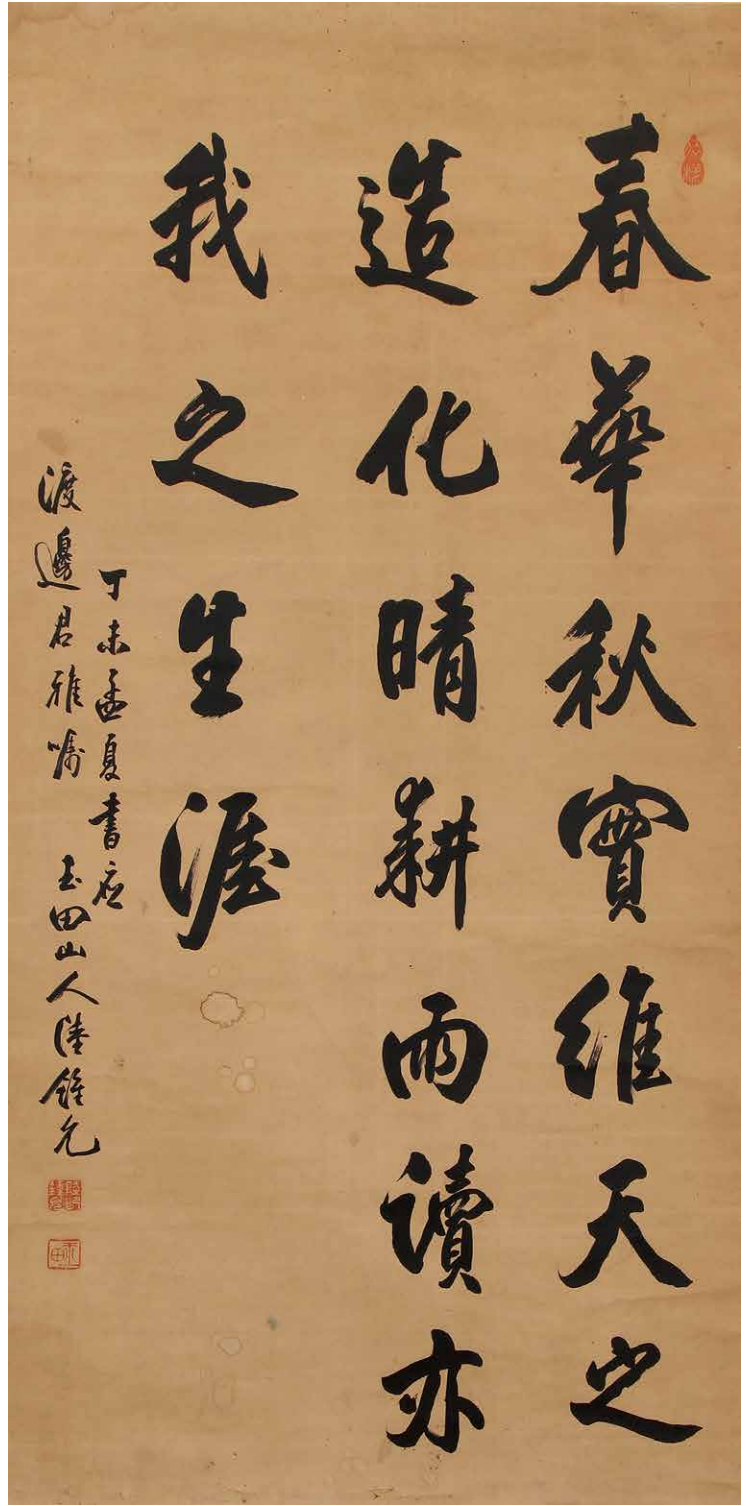 春華秋實維天之
造化晴耕雨讀亦
我之生涯
丁未孟夏書应
渡邊君雅嘱
玉田山人陸鍾允